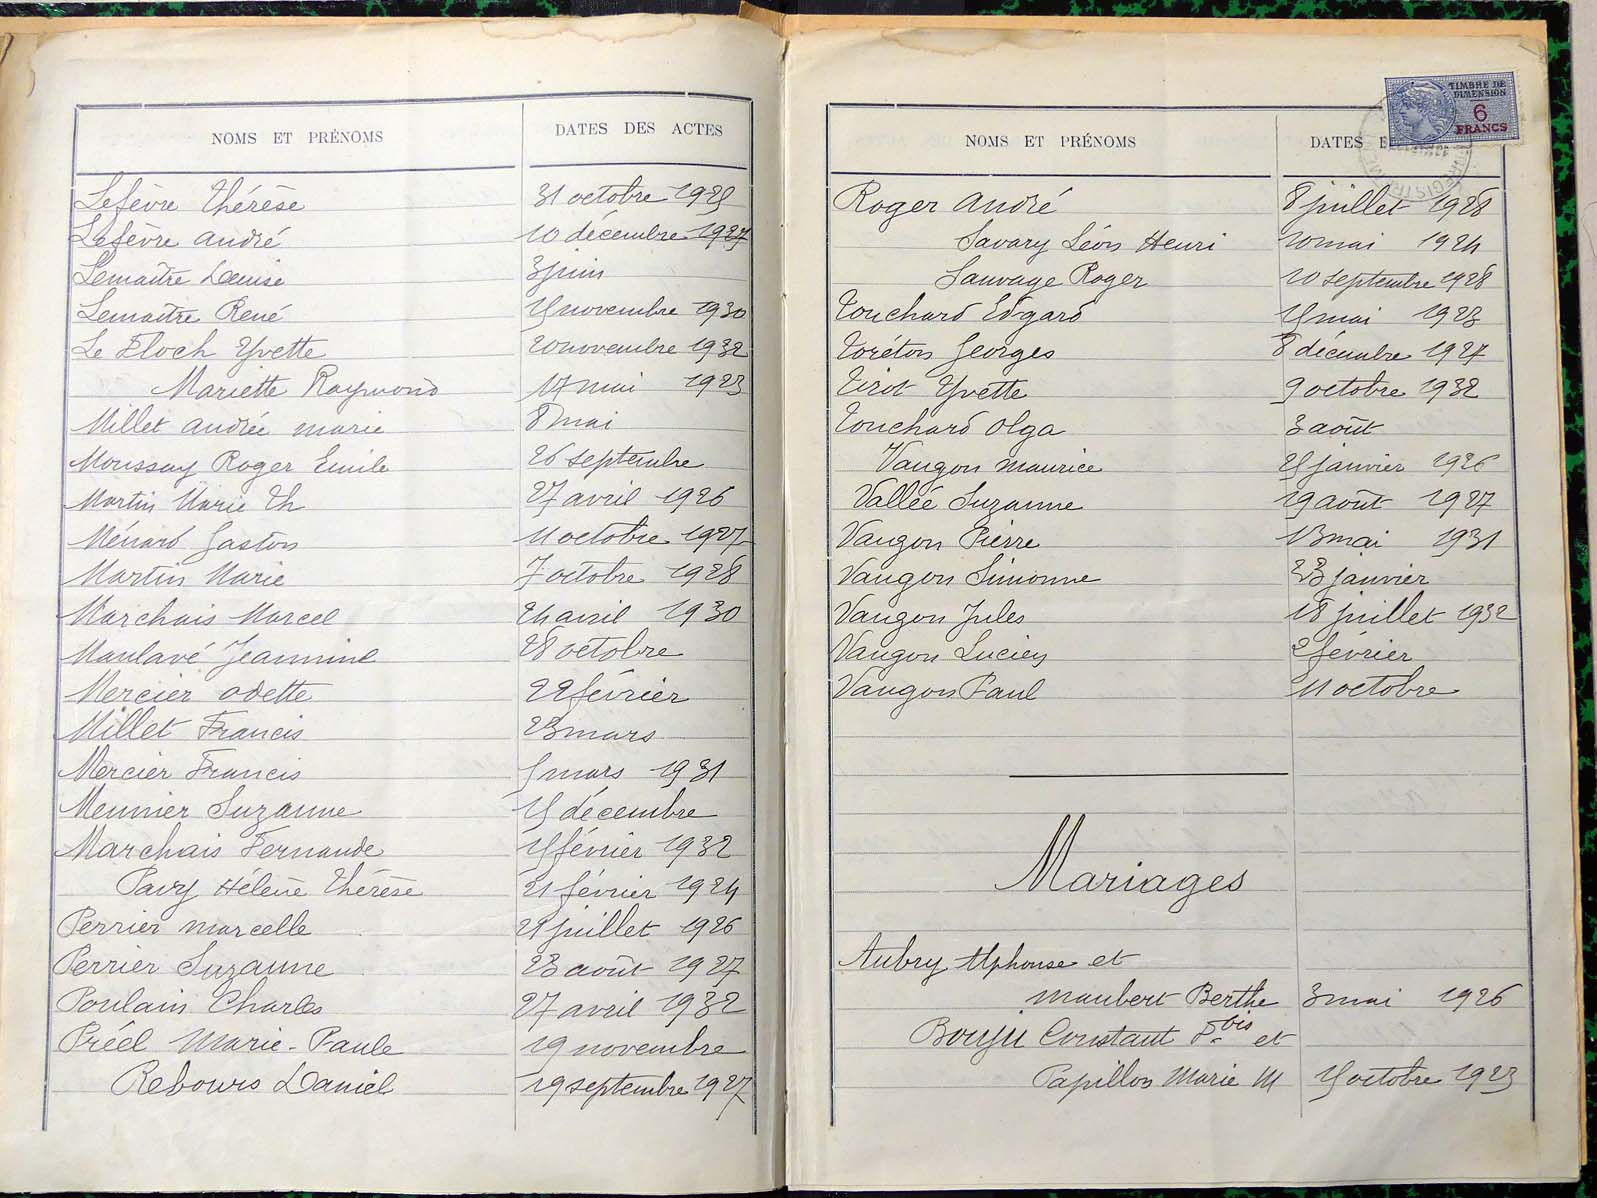 NOMS ET PRÉNOMS DATES DES ACTES
Lefèvre Thérèse 31 octobre 1925
Lefèvre André 10 décembre 1927
Lemaître Denise 3 juin
Lemaître René 15 novembre 1930
Le Floch Yvette 20 novembre 1932
Mariette Raymond 17 mai 1923
Millet Andrée Marie 8 mai
Moussay Roger Emile 26 septembre
Martin Marie Th 27 avril 1926
Ménard Gaston 11 octobre 1927
Martin Marie 7 octobre 1928
Marchais Marcel 24 avril 1930
Maulavé Jeannine 28 octobre
Mercier Odette 22 février
Millet Francis 23 mars
Mercier Francis 5 mars 1931
Meunier Suzanne 15 décembre
Marchais Fernande 15 février 1932
Pavy Hélène Thérèse 21 février 1924
Perrier Marcelle 25 juillet 1926
Perrier Suzanne 23 août 1927
Poulain Charles 27 avril 1932
Préel Marie-Paule 19 novembre
Rebours Daniel 19 septembre 1927
TIMBRE DE
DIMENSION
6
FRANCS
NOMS ET PRÉNOMS DATES
Roger André 8 juillet 1928
Savary Léon Henri 20 mai 1924
Sauvage Roger 10 septembre 1928
Touchard Edgard 15 mai 1923
Toréton Georges 8 décembre 1927
Tirot Yvette 9 octobre 1932
Touchard Olga 3 août
Vaugon Maurice 25 janvier 1926
Vallée Suzanne 19 août 1927
Vaugon Pierre 13 mai 1931
Vaugon Simonne 23 janvier
Vaugon Jules 18 juillet 1932
Vaugon Lucien 2 février
Vaugon Paul 11 octobre
Mariages
Aubry Alphonse et
Maubert Berthe 3 mai 1926
Bouju Constant et
Papillon Marie M 15 octobre 1923